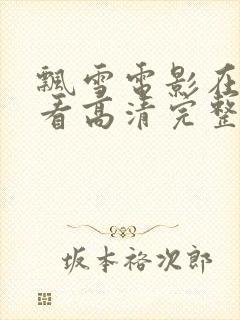 飘雪电影在
看高清完整
坂本裕次郎